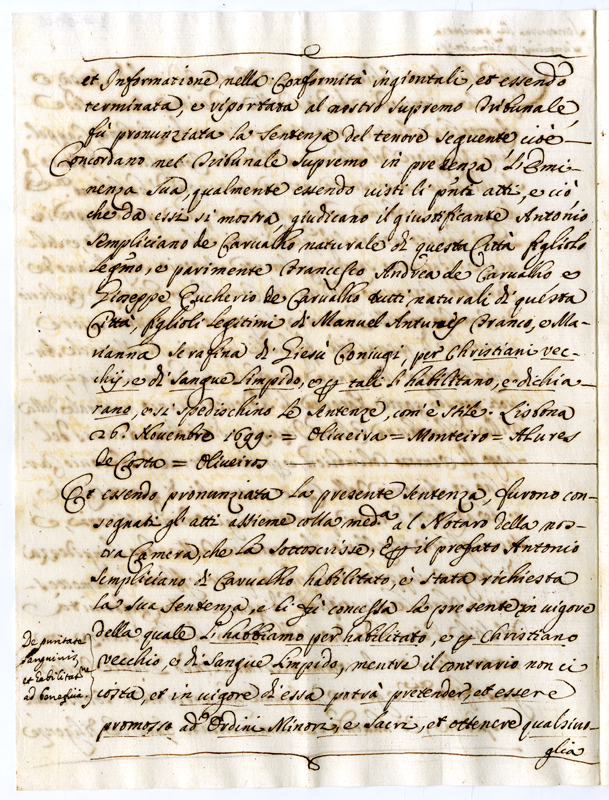 et Informatione nella Conformità ingiontali, et essendo
terminata, e riportata al nostro supremo Tribunale,
fù pronunziata la sentenza del tenore sequente cioè
Concordano nel Tribunale Supremo in presenza L'Emi-
nenza Sua, qualmente essendo visti li pnti atti, e ciò
che da essi si mostra, giudicano il giustificante Antonio
sempliciano de Carvalho naturale di questa Città figliolo
legmo, e parimente Francesco Andrea de Carvalho e
Giuseppe Eucherio de Carvalho tutti naturali di questa
Città, figlioli legitimi di Manuel Antunes Franco, e Ma-
rianna serafina di Giesù Coniugi, per Christiani vec-
chij, e di sangue limpido, e p tali li habilitano, e dichia-
rano, e si spedischino le sentenze, com'è stile. Lisbona
26. Novembre 1699. = Oliveira = Monteiro = Alures
de Costa = Oliveiros
Et essendo pronunziata la presente sentenza, furono con-
segnati gl'atti assieme colla meda al Notaro della nos-
tra Camera, che la sottoscrisse, E p il prefato Antonio
sempliciano di Carvalho habilitato, è stata richiesta
la sua sentenza, e li fù concessa la presente in vigore
della quale l'habbiamo per habilitato, e p Christiano
vecchio, e di sangue limpido, mentre il contrario non ci
costa, et in vigore di essa potrà pretender, et essere
promosso ad Ordini Minori, e sacri, et ottenere qualsivo-
glia
De puritate
sanguinis
et habilitate
ad beneficia